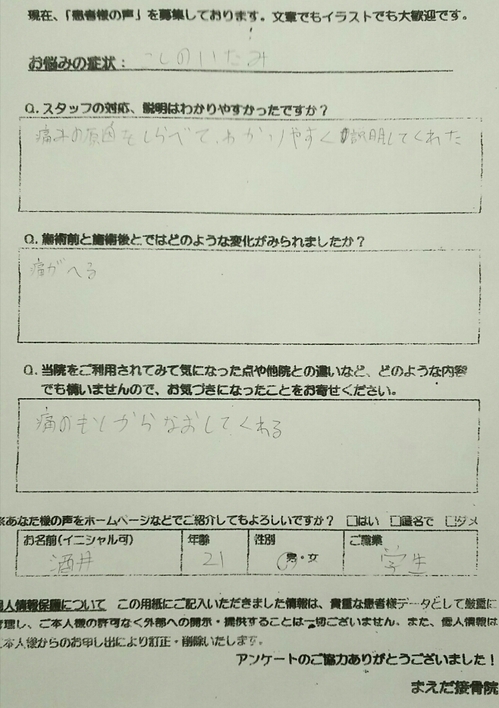 現在、「患者様の声」を募集しております。文章でもイラストでも大歓迎です。
お悩みの症状: こしのいたみ
Q. スタッフの対応、説明はわかりやすかったですか?
痛みの原因をしらべて、わかりやすく説明してくれた
Q. 施術前と施術後とではどのような変化がみられましたか?
痛がへる
Q. 当院をご利用されてみて気になった点や他院との違いなど、どのような内容
でも構いませんので、お気づきになったことをお寄せください。
痛のもとからなおしてくれる
※あなた様の声をホームページなどでご紹介してもよろしいですか? □はい □匿名で □ダメ
お名前(イニシャル可) 年齢 性別 ご職業
酒井 21 男・女 学生
個人情報保護について この用紙にご記入いただきました情報は、貴重な患者様データとして厳重に
管理し、ご本人様の許可なく外部への開示・提供することは一切ございません。また、個人情報は
ご本人様からのお申し出により訂正・削除いたします。
アンケートのご協力ありがとうございました!
まえだ接骨院